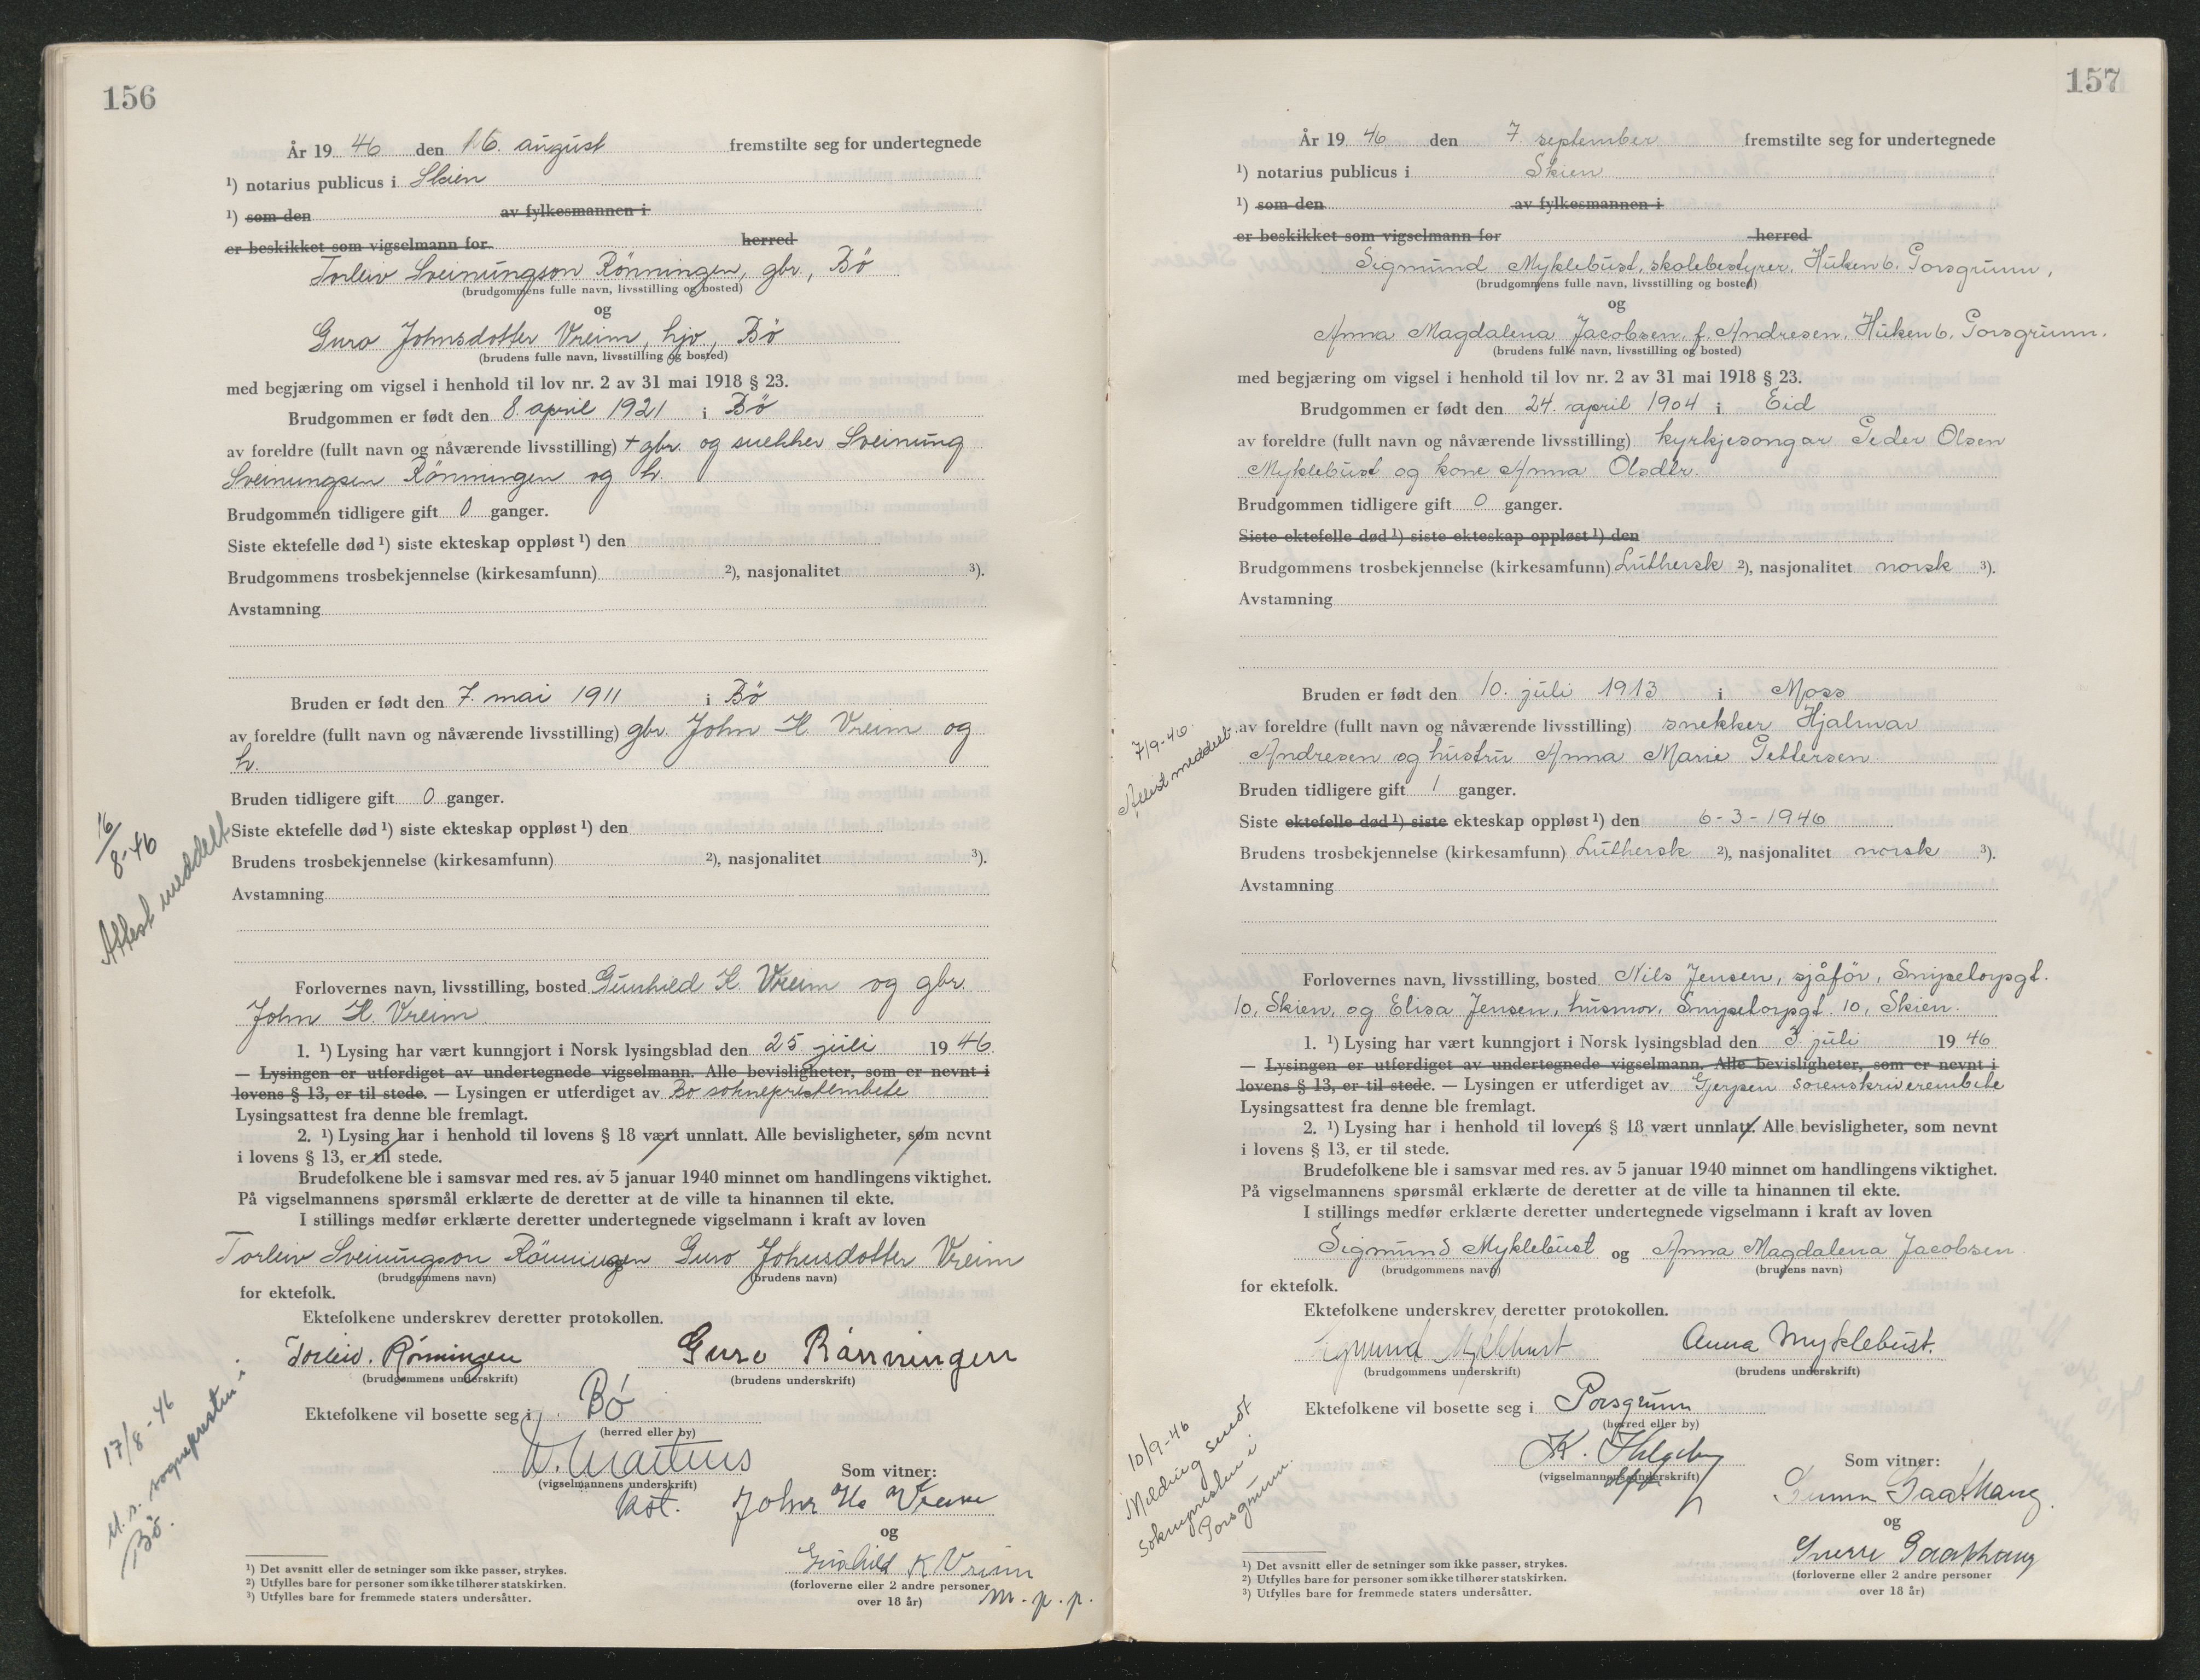 156
År 19 46 den 16. august fremstilte seg for undertegnede
¹) notarius publicus i Skien
¹) som den av fylkesmannen i
er beskikket som vigselmann for herred
Torleiv Sveinungson Rönningen, gbr, Bö
(brudgommens fulle navn, livsstilling og bosted)
og
Guro Johnsdotter Vreim, hjv, Bö
(brudens fulle navn, livsstilling og bosted)
med begjæring om vigsel i henhold til lov nr. 2 av 31 mai 1918 § 23.
Brudgommen er født den 8. april 1921 i Bö
av foreldre (fullt navn og nåværende livsstilling) + gbr. og snekker Sveinung
Sveinungsen Rönningen og h.
Brudgommen tidligere gift 0 ganger.
Siste ektefelle død ¹) siste ekteskap oppløst ¹) den
Brudgommens trosbekjennelse (kirkesamfunn) ²), nasjonalitet ³).
Avstamning
Bruden er født den 7. mai 1911 i Bö
av foreldre (fullt navn og nåværende livsstilling) gbr. John H. Vreim og
h.
Bruden tidligere gift 0 ganger.
Siste ektefelle død ¹) siste ekteskap oppløst ¹) den
Brudens trosbekjennelse (kirkesamfunn) ²), nasjonalitet ³).
Avstamning
16/8-46
Attest meddelt
Forlovernes navn, livsstilling, bosted Gunhild K Vreim og gbr
John H. Vreim.
1. ¹) Lysing har vært kunngjort i Norsk lysingsblad den 25 juli 19 46.
— Lysingen er utferdiget av undertegnede vigselmann. Alle bevisligheter, som er nevnt i
lovens § 13, er til stede. — Lysingen er utferdiget av Bø sokneprestembete
Lysingsattest fra denne ble fremlagt.
2. ¹) Lysing har i henhold til lovens § 18 vært unnlatt. Alle bevisligheter, som nevnt
i lovens § 13, er til stede.
Brudefolkene ble i samsvar med res. av 5 januar 1940 minnet om handlingens viktighet.
På vigselmannens spørsmål erklærte de deretter at de ville ta hinannen til ekte.
I stillings medfør erklærte deretter undertegnede vigselmann i kraft av loven
Torleiv Sveinungson Rönningen Guro Johnsdotter Vreim
(brudgommens navn) (brudens navn)
for ektefolk.
Ektefolkene underskrev deretter protokollen.
Torleiv. Rönningen Guro Rönningen
(brudgommens underskrift) (brudens underskrift)
Ektefolkene vil bosette seg i Bö
(herred eller by)
17/8-46
M. s. sognepresten i
Bö.
(vigselmannens underskrift) Som vitner:
kst. John H. Vreim
og
Gunhild K Vreim
(forloverne eller 2 andre personer
over 18 år) m.p.p.
¹) Det avsnitt eller de setninger som ikke passer, strykes.
²) Utfylles bare for personer som ikke tilhører statskirken.
³) Utfylles bare for fremmede staters undersåtter.
157
År 19 46 den 7 september fremstilte seg for undertegnede
¹) notarius publicus i Skien
¹) som den av fylkesmannen i
er beskikket som vigselmann for herred
Sigmund Myklebust, skolebestyrer, Huken 6. Porsgrunn,
(brudgommens fulle navn, livsstilling og bosted)
og
Anna Magdalena Jacobsen, f. Andresen, Huken 6, Porsgrunn.
(brudens fulle navn, livsstilling og bosted)
med begjæring om vigsel i henhold til lov nr. 2 av 31 mai 1918 § 23.
Brudgommen er født den 24. april 1904 i Eid
av foreldre (fullt navn og nåværende livsstilling) kyrkjesongar Peder Olsen
Myklebust og kone Anna Olsdtr.
Brudgommen tidligere gift 0 ganger.
Siste ektefelle død ¹) siste ekteskap oppløst ¹) den
Brudgommens trosbekjennelse (kirkesamfunn) Luthersk ²), nasjonalitet norsk ³).
Avstamning
Bruden er født den 10. juli 1913 i Moss
av foreldre (fullt navn og nåværende livsstilling) snekker Hjalmar
Andresen og hustru Anna Marie Pettersen
7/9-46.
Attest meddelt.
Bruden tidligere gift 1 ganger.
Siste ektefelle død ¹) siste ekteskap oppløst ¹) den 6-3-1946
Brudens trosbekjennelse (kirkesamfunn) Luthersk ²), nasjonalitet norsk ³).
Avstamning
Forlovernes navn, livsstilling, bosted Nils Jensen, sjåför, Snipetorpgt.
10, Skien, og Elisa Jensen, husmor, Snipetorpgt. 10, Skien.
1. ¹) Lysing har vært kunngjort i Norsk lysingsblad den 3. juli 19 46
— Lysingen er utferdiget av undertegnede vigselmann. Alle bevisligheter, som er nevnt i
lovens § 13, er til stede. — Lysingen er utferdiget av Gjerpen sorenskriverembete
Lysingsattest fra denne ble fremlagt.
2. ¹) Lysing har i henhold til lovens § 18 vært unnlatt. Alle bevisligheter, som nevnt
i lovens § 13, er til stede.
Brudefolkene ble i samsvar med res. av 5 januar 1940 minnet om handlingens viktighet.
På vigselmannens spørsmål erklærte de deretter at de ville ta hinannen til ekte.
I stillings medfør erklærte deretter undertegnede vigselmann i kraft av loven
Sigmund Myklebust og Anna Magdalena Jacobsen
(brudgommens navn) (brudens navn)
for ektefolk.
Ektefolkene underskrev deretter protokollen.
Sigmund Myklebust Anna Myklebust.
(brudgommens underskrift) (brudens underskrift)
Ektefolkene vil bosette seg i Porsgrunn
(herred eller by)
10/9-46
Melding sendt
soknepresten i
Porsgrunn.
K.
(vigselmannens underskrift) Som vitner:
Gunn Gaarhaug.
og
Sverre Gaarhaug
(forloverne eller 2 andre personer
over 18 år)
¹) Det avsnitt eller de setninger som ikke passer, strykes.
²) Utfylles bare for personer som ikke tilhører statskirken.
³) Utfylles bare for fremmede staters undersåtter.